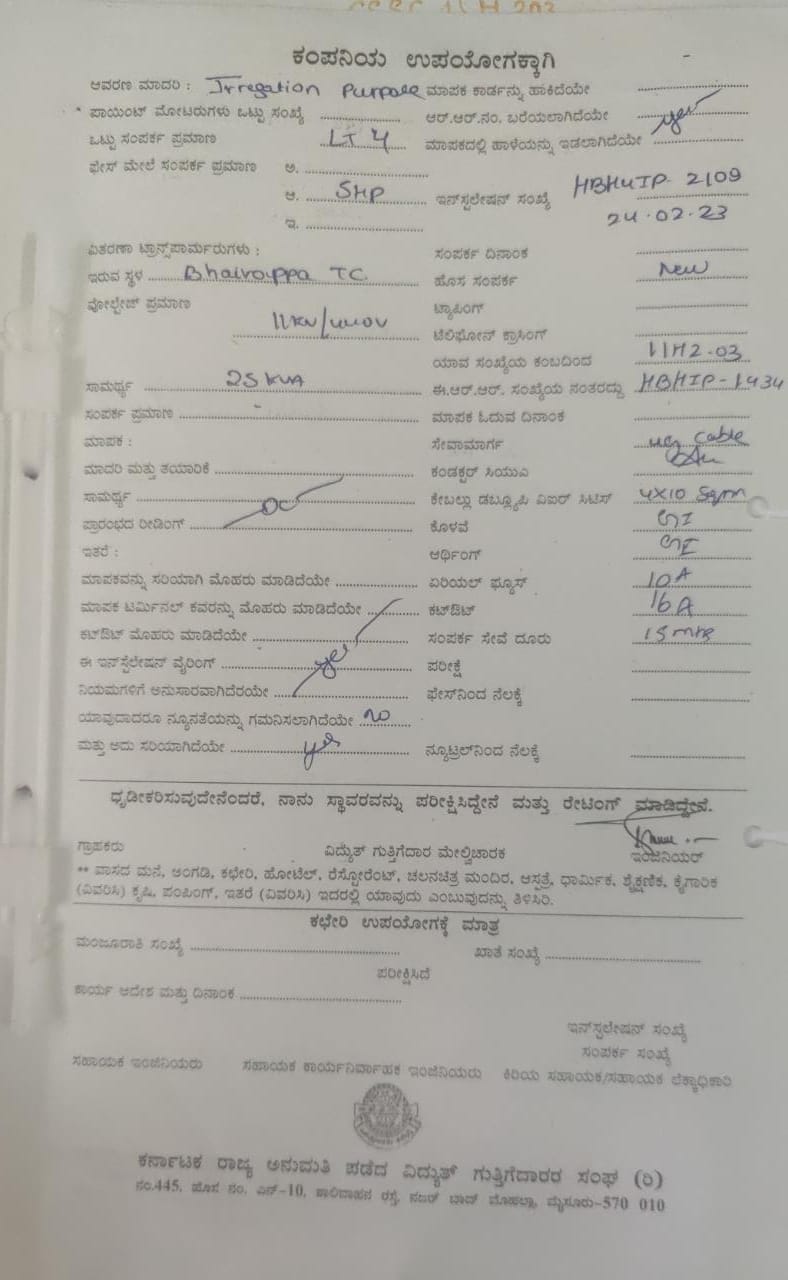 ಕಂಪನಿಯ ಉಪಯೋಗಕ್ಕಾಗಿ
ಆವರಣ ಮಾದರಿ : Irregation Purpose ಮಾಪಕ ಕಾರ್ಡನ್ನು ಹಾಕಿದೆಯೇ
* ಪಾಯಿಂಟ್ ಮೋಟರುಗಳು ಒಟ್ಟು ಸಂಖ್ಯೆ ಆರ್.ಆರ್.ನಂ. ಬರೆಯಲಾಗಿದೆಯೇ yes
ಒಟ್ಟು ಸಂಪರ್ಕ ಪ್ರಮಾಣ LT 4 ಮಾಪಕದಲ್ಲಿ ಹಾಳೆಯನ್ನು ಇಡಲಾಗಿದೆಯೇ
ಫೇಸ್ ಮೇಲೆ ಸಂಪರ್ಕ ಪ್ರಮಾಣ ಅ.
ಆ. 5HP ಇನ್‌ಸ್ಟಲೇಷನ್ ಸಂಖ್ಯೆ HBH4IP-2109
ಇ. 24.02.23
ವಿತರಣಾ ಟ್ರಾನ್ಸ್‌ಪಾರ್ಮರುಗಳು : ಸಂಪರ್ಕ ದಿನಾಂಕ
ಇರುವ ಸ್ಥಳ Bhairappa TC ಹೊಸ ಸಂಪರ್ಕ New
ವೋಲ್ಟೇಜ್ ಪ್ರಮಾಣ ಟ್ಯಾಪಿಂಗ್
11KV/440V ಟೆಲಿಫೋನ್ ಕ್ರಾಸಿಂಗ್
ಯಾವ ಸಂಖ್ಯೆಯ ಕಂಬದಿಂದ 11H2-03
ಸಾಮರ್ಥ್ಯ 25 KVA ಈ.ಆರ್.ಆರ್. ಸಂಖ್ಯೆಯ ನಂತರದ್ದು HBHIP-1934
ಸಂಪರ್ಕ ಪ್ರಮಾಣ ಮಾಪಕ ಓದುವ ದಿನಾಂಕ
ಮಾಪಕ : ಸೇವಾಮಾರ್ಗ UG Cable
ಮಾದರಿ ಮತ್ತು ತಯಾರಿಕೆ ಕಂಡಕ್ಟರ್ ಸಿಯುಎ
ಸಾಮರ್ಥ್ಯ ಕೇಬಲ್ಲು ಡಬ್ಲ್ಯೂಪಿ ವಿಐಆರ್ ಸಿಟಿಸ್ 4X10 Sqmm
ಪ್ರಾರಂಭದ ರೀಡಿಂಗ್ ಕೊಳವೆ GI
ಇತರೆ : ಆರ್ಥಿಂಗ್ GI
ಮಾಪಕವನ್ನು ಸರಿಯಾಗಿ ಮೊಹರು ಮಾಡಿದೆಯೇ ಏರಿಯಲ್ ಫ್ಯೂಸ್ 10A
ಮಾಪಕ ಟರ್ಮಿನಲ್ ಕವರನ್ನು ಮೊಹರು ಮಾಡಿದೆಯೇ ಕಟ್‌ಔಟ್ 16A
ಕಟ್‌ಔಟ್ ಮೊಹರು ಮಾಡಿದೆಯೇ ಸಂಪರ್ಕ ಸೇವೆ ದೂರು 15 mtr
ಈ ಇನ್‌ಸ್ಟಲೇಷನ್ ವೈರಿಂಗ್ yes ಪರೀಕ್ಷೆ
ನಿಯಮಗಳಿಗೆ ಅನುಸಾರವಾಗಿದೆರಯೇ ಫೇಸ್‌ನಿಂದ ನೆಲಕ್ಕೆ
ಯಾವುದಾದರೂ ನ್ಯೂನತೆಯನ್ನು ಗಮನಿಸಲಾಗಿದೆಯೇ no
ಮತ್ತು ಅದು ಸರಿಯಾಗಿದೆಯೇ yes ನ್ಯೂಟ್ರಲ್‌ನಿಂದ ನೆಲಕ್ಕೆ
ಧೃಡೀಕರಿಸುವುದೇನೆಂದರೆ, ನಾನು ಸ್ಥಾವರವನ್ನು ಪರೀಕ್ಷಿಸಿದ್ದೇನೆ ಮತ್ತು ರೇಟಿಂಗ್ ಮಾಡಿದ್ದೇನೆ.
ಗ್ರಾಹಕರು ವಿದ್ಯುತ್ ಗುತ್ತಿಗೆದಾರ ಮೇಲ್ವಿಚಾರಕ ಇಂಜಿನಿಯರ್
** ವಾಸದ ಮನೆ, ಅಂಗಡಿ, ಕಛೇರಿ, ಹೋಟೆಲ್, ರೆಸ್ಟೋರೆಂಟ್, ಚಲನಚಿತ್ರ ಮಂದಿರ, ಆಸ್ಪತ್ರೆ, ಧಾರ್ಮಿಕ, ಶೈಕ್ಷಣಿಕ, ಕೈಗಾರಿಕ
(ವಿವರಿಸಿ) ಕೃಷಿ, ಪಂಪಿಂಗ್, ಇತರೆ (ವಿವರಿಸಿ) ಇದರಲ್ಲಿ ಯಾವುದು ಎಂಬುವುದನ್ನು ತಿಳಿಸಿರಿ.
ಕಛೇರಿ ಉಪಯೋಗಕ್ಕೆ ಮಾತ್ರ
ಮಂಜೂರಾತಿ ಸಂಖ್ಯೆ ಖಾತೆ ಸಂಖ್ಯೆ
ಪರೀಕ್ಷಿಸಿದೆ
ಕಾರ್ಯ ಆದೇಶ ಮತ್ತು ದಿನಾಂಕ
ಇನ್‌ಸ್ಟಲೇಷನ್ ಸಂಖ್ಯೆ
ಸಂಪರ್ಕ ಸಂಖ್ಯೆ
ಸಹಾಯಕ ಇಂಜಿನಿಯರು ಸಹಾಯಕ ಕಾರ್ಯನಿರ್ವಾಹಕ ಇಂಜಿನಿಯರು ಕಿರಿಯ ಸಹಾಯಕ/ಸಹಾಯಕ ಲೆಕ್ಕಾಧಿಕಾರಿ
ಕರ್ನಾಟಕ ರಾಜ್ಯ ಅನುಮತಿ ಪಡೆದ ವಿದ್ಯುತ್ ಗುತ್ತಿಗೆದಾರರ ಸಂಘ (ರಿ)
ನಂ.445, ಹೊಸ ನಂ. ಎನ್-10, ಶಾಲಿವಾಹನ ರಸ್ತೆ, ನಜರ್ ಬಾದ್ ಮೊಹಲ್ಲಾ, ಮೈಸೂರು-570 010